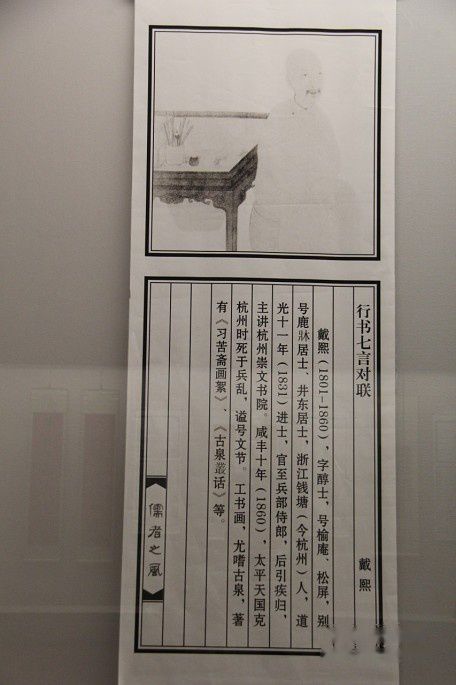 行书七言对联 戴熙
戴熙(1801-1860),字醇士,号榆庵、松屏,别
号鹿牀居士、井东居士,浙江钱塘(今杭州)人,道
光十一年(1831)进士,官至兵部侍郎,后引疾归,
主讲杭州崇文书院。咸丰十年(1860),太平天国克
杭州时死于兵乱,谥号文节。工书画,尤嗜古泉,著
有《习苦斋画絮》、《古泉叢话》等。
儒者之风